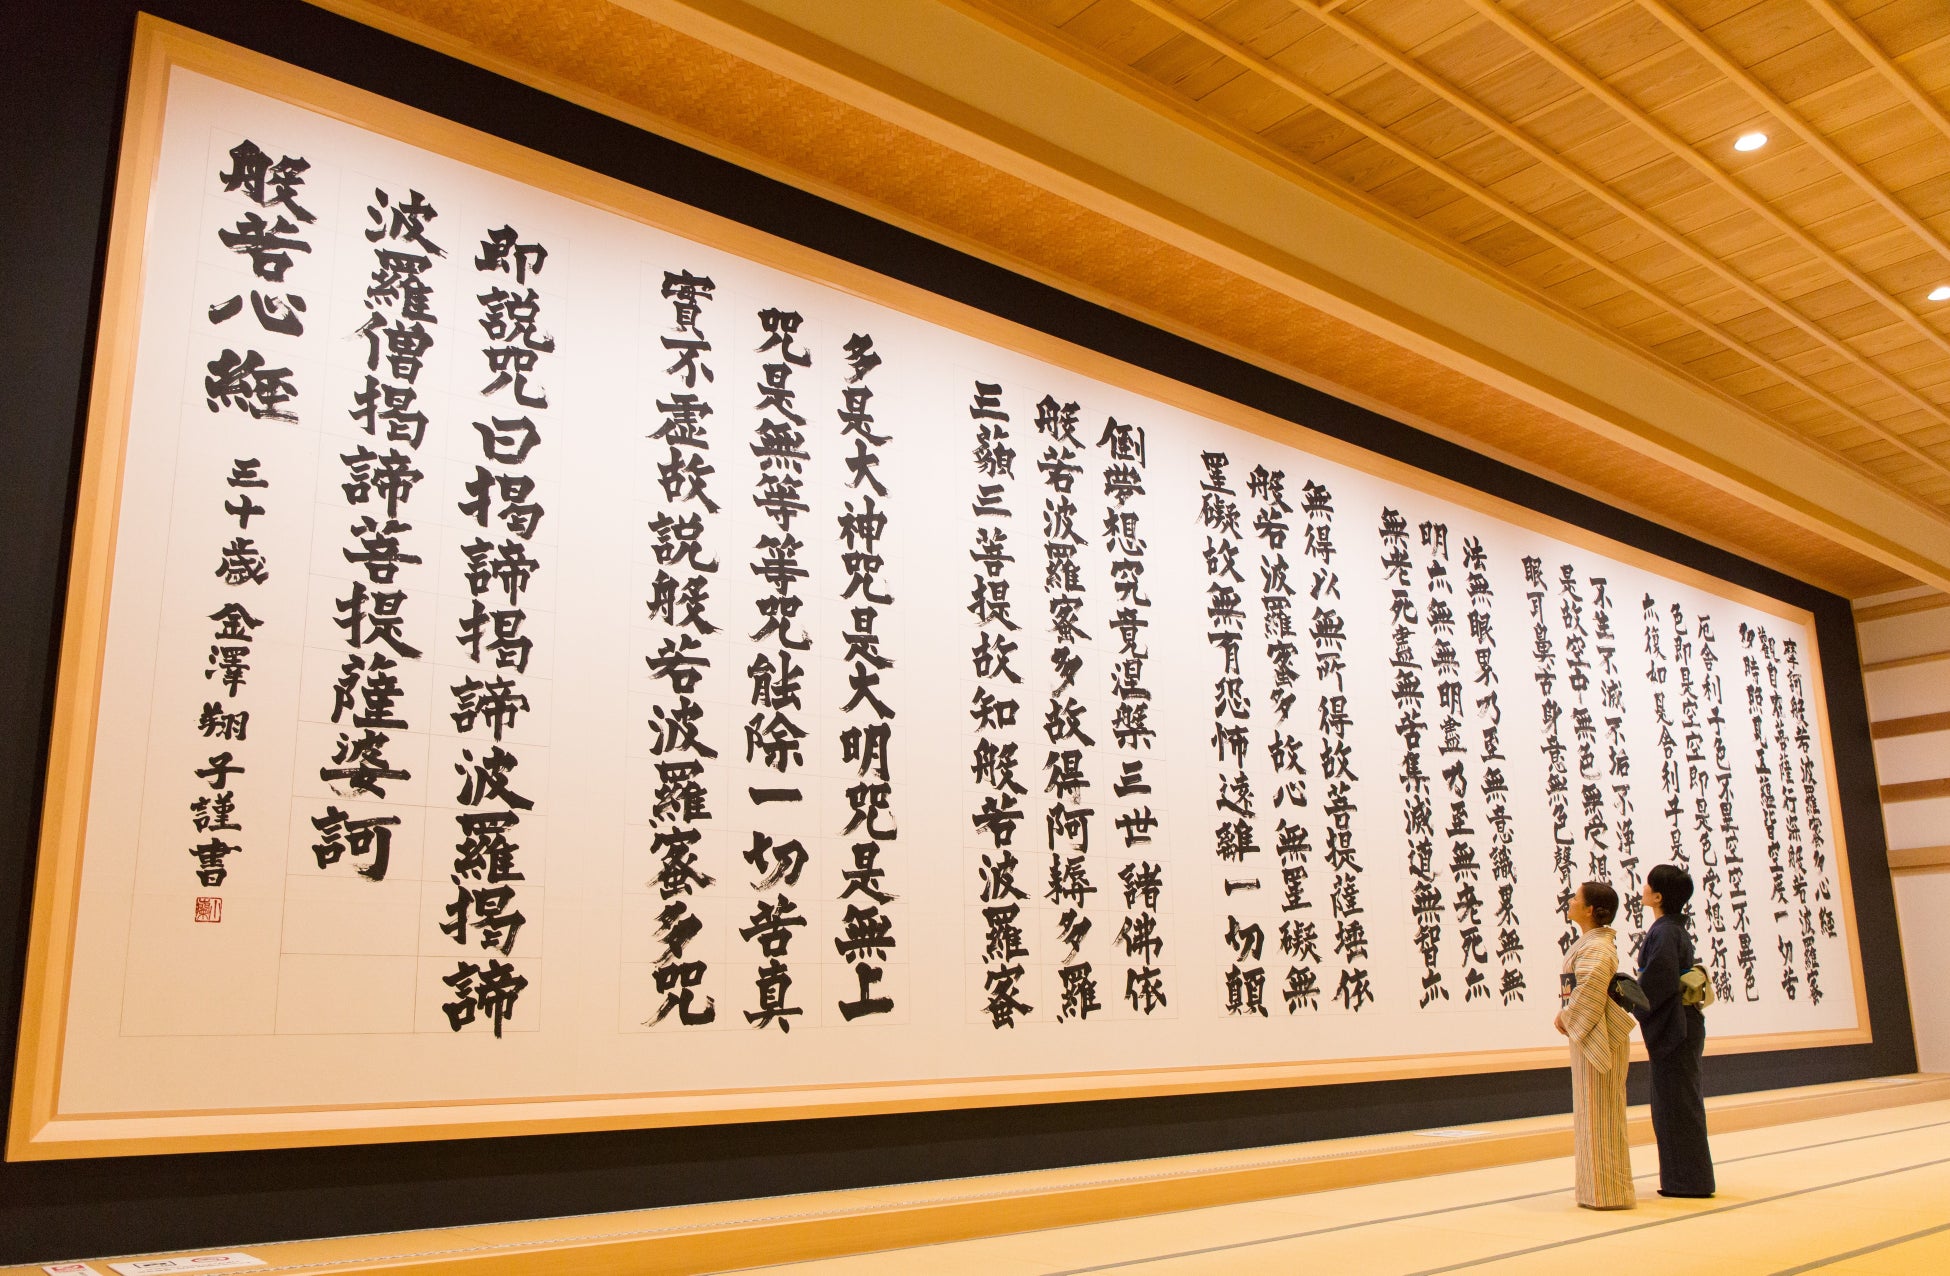 摩訶般若波羅蜜多心經
觀自在菩薩行深般若波羅蜜
多時照見五蘊皆空度一切苦
厄舎利子色不異空空不異色
色即是空空即是色受想行識
亦復如是舎利子是
不生不滅不垢不浄不増不
是故空中無色無受想
眼耳鼻舌身意無色聲香味
法無眼界乃至無意識界無無
明亦無無明盡乃至無老死亦
無老死盡無苦集滅道無智亦
無得以無所得故菩提薩埵依
般若波羅蜜多故心無罣礙無
罣礙故無有恐怖遠離一切顛
倒夢想究竟涅槃三世諸佛依
般若波羅蜜多故得阿耨多羅
三藐三菩提故知般若波羅蜜
多是大神咒是大明咒是無上
咒是無等等咒能除一切苦真
實不虚故説般若波羅蜜多咒
即説咒曰揭諦揭諦波羅揭諦
波羅僧揭諦菩提薩婆訶
般若心經 三十歳 金澤翔子謹書